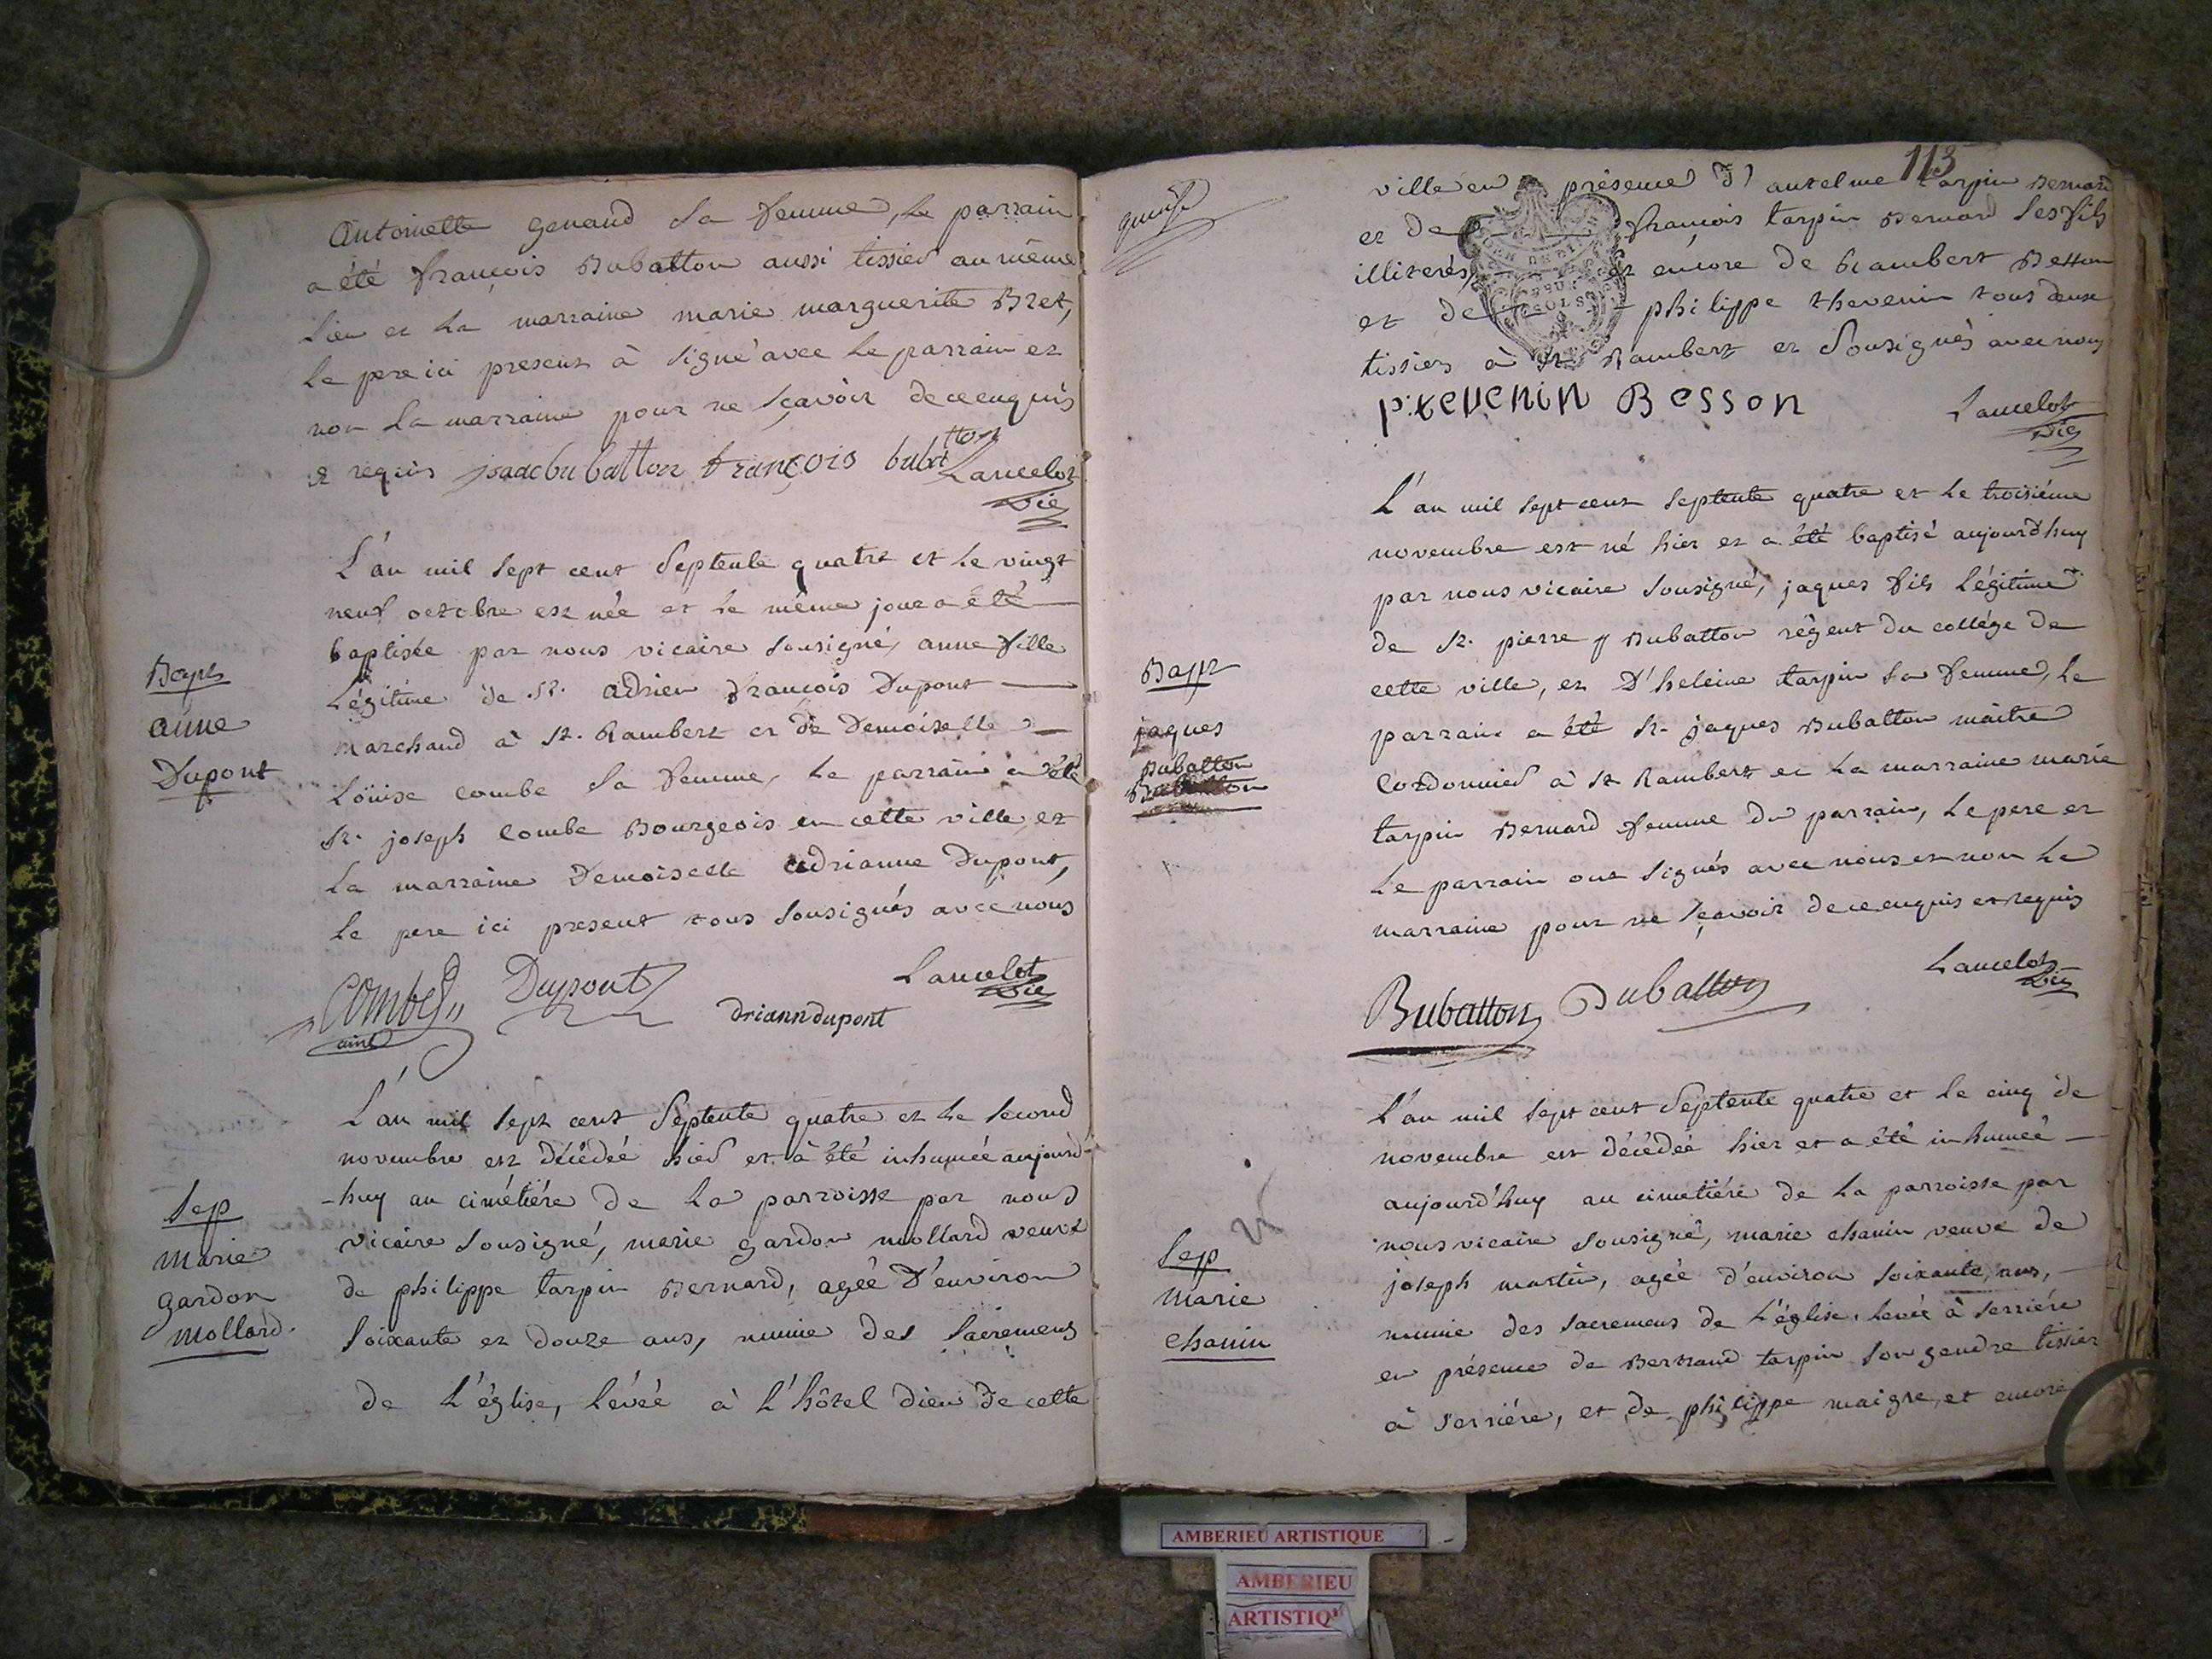 Antoinette Genand sa femme, le parrain
a été françois Bubatton aussi tissier au même
lieu et la marraine marie marguerite Bret,
le pere ici present à signé avec le parrain et
non la marraine pour ne sçavoir de ce enquis
et requis jsaac bubatton françois bubatton Lancelot
vic
L'an mil sept cent septente quatre et le vingt
neuf octobre est née et le même jour a été
baptisée par nous vicaire sousigné, anne fille
Légitime de sr. adrien françois Dupont
marchand à st. Rambert et de Demoiselle
Loüise combe sa femme, le parrain a été
sr. joseph Combe Bourgeois en cette ville, et
la marraine Demoiselle adrianne Dupont,
le pere ici present tous sousignés avec nous
Bapt
anne
Dupont
Combe Dupont Lancelot
ainé driann dupont vic
L'an mil sept cent septente quatre et le second
novembre est décédée hier et à été inhumée aujourd-
-huy au cimétiére de la parroisse par nous
vicaire sousigné, marie gardon mollard veuve
de philippe tarpin Bernard, agée d'environ
soixante et douze ans, munie des sacremens
de l'église, levée à l'hôtel dieu de cette
Sep
Marie
gardon
Mollard.
113
ville en présence d'antelme tarpin Bernard
et de françois tarpin Bernard ses fils
illiterés, et encore de Rambert Besson
et de philippe thevenin tous deux
tissiers à st Rambert et sousignés avec nous
p:tevenin Besson Lancelot
vic
L'an mil sept cent septente quatre et le troisiéme
novembre est né hier et a été baptisé aujourd'huy
par nous vicaire sousigné, jaques fils légitime
de sr. pierre Bubatton régent du collége de
cette ville, et d'heleine tarpin sa femme, le
parrain a été sr. jaques Bubatton maitre
Cordonnier à st Rambert et la marraine marie
tarpin Bernard femme du parrain, le pere et
le parrain ont signés avec nous et non la
marraine pour ne sçavoir de ce enquis et requis
Bapt
jaques
Bubatton
Lancelot
vic
Bubatton Bubatton
L'an mil sept cent septente quatre et le cinq de
novembre est décédée hier et a été inhumeé
aujourd'huy au cimetiére de la parroisse par
nous vicaire sousigné, marie chanin veuve de
joseph martin, agée d'environ soixante ans,
munie des sacremens de l'église, levée à serriére
en présence de Bertrand tarpin son gendre tissier
à serriére, et de philippe maigre, et encore
Sep
Marie
Chanin
AMBERIEU ARTISTIQUE
AMBERIEU
ARTISTIQ